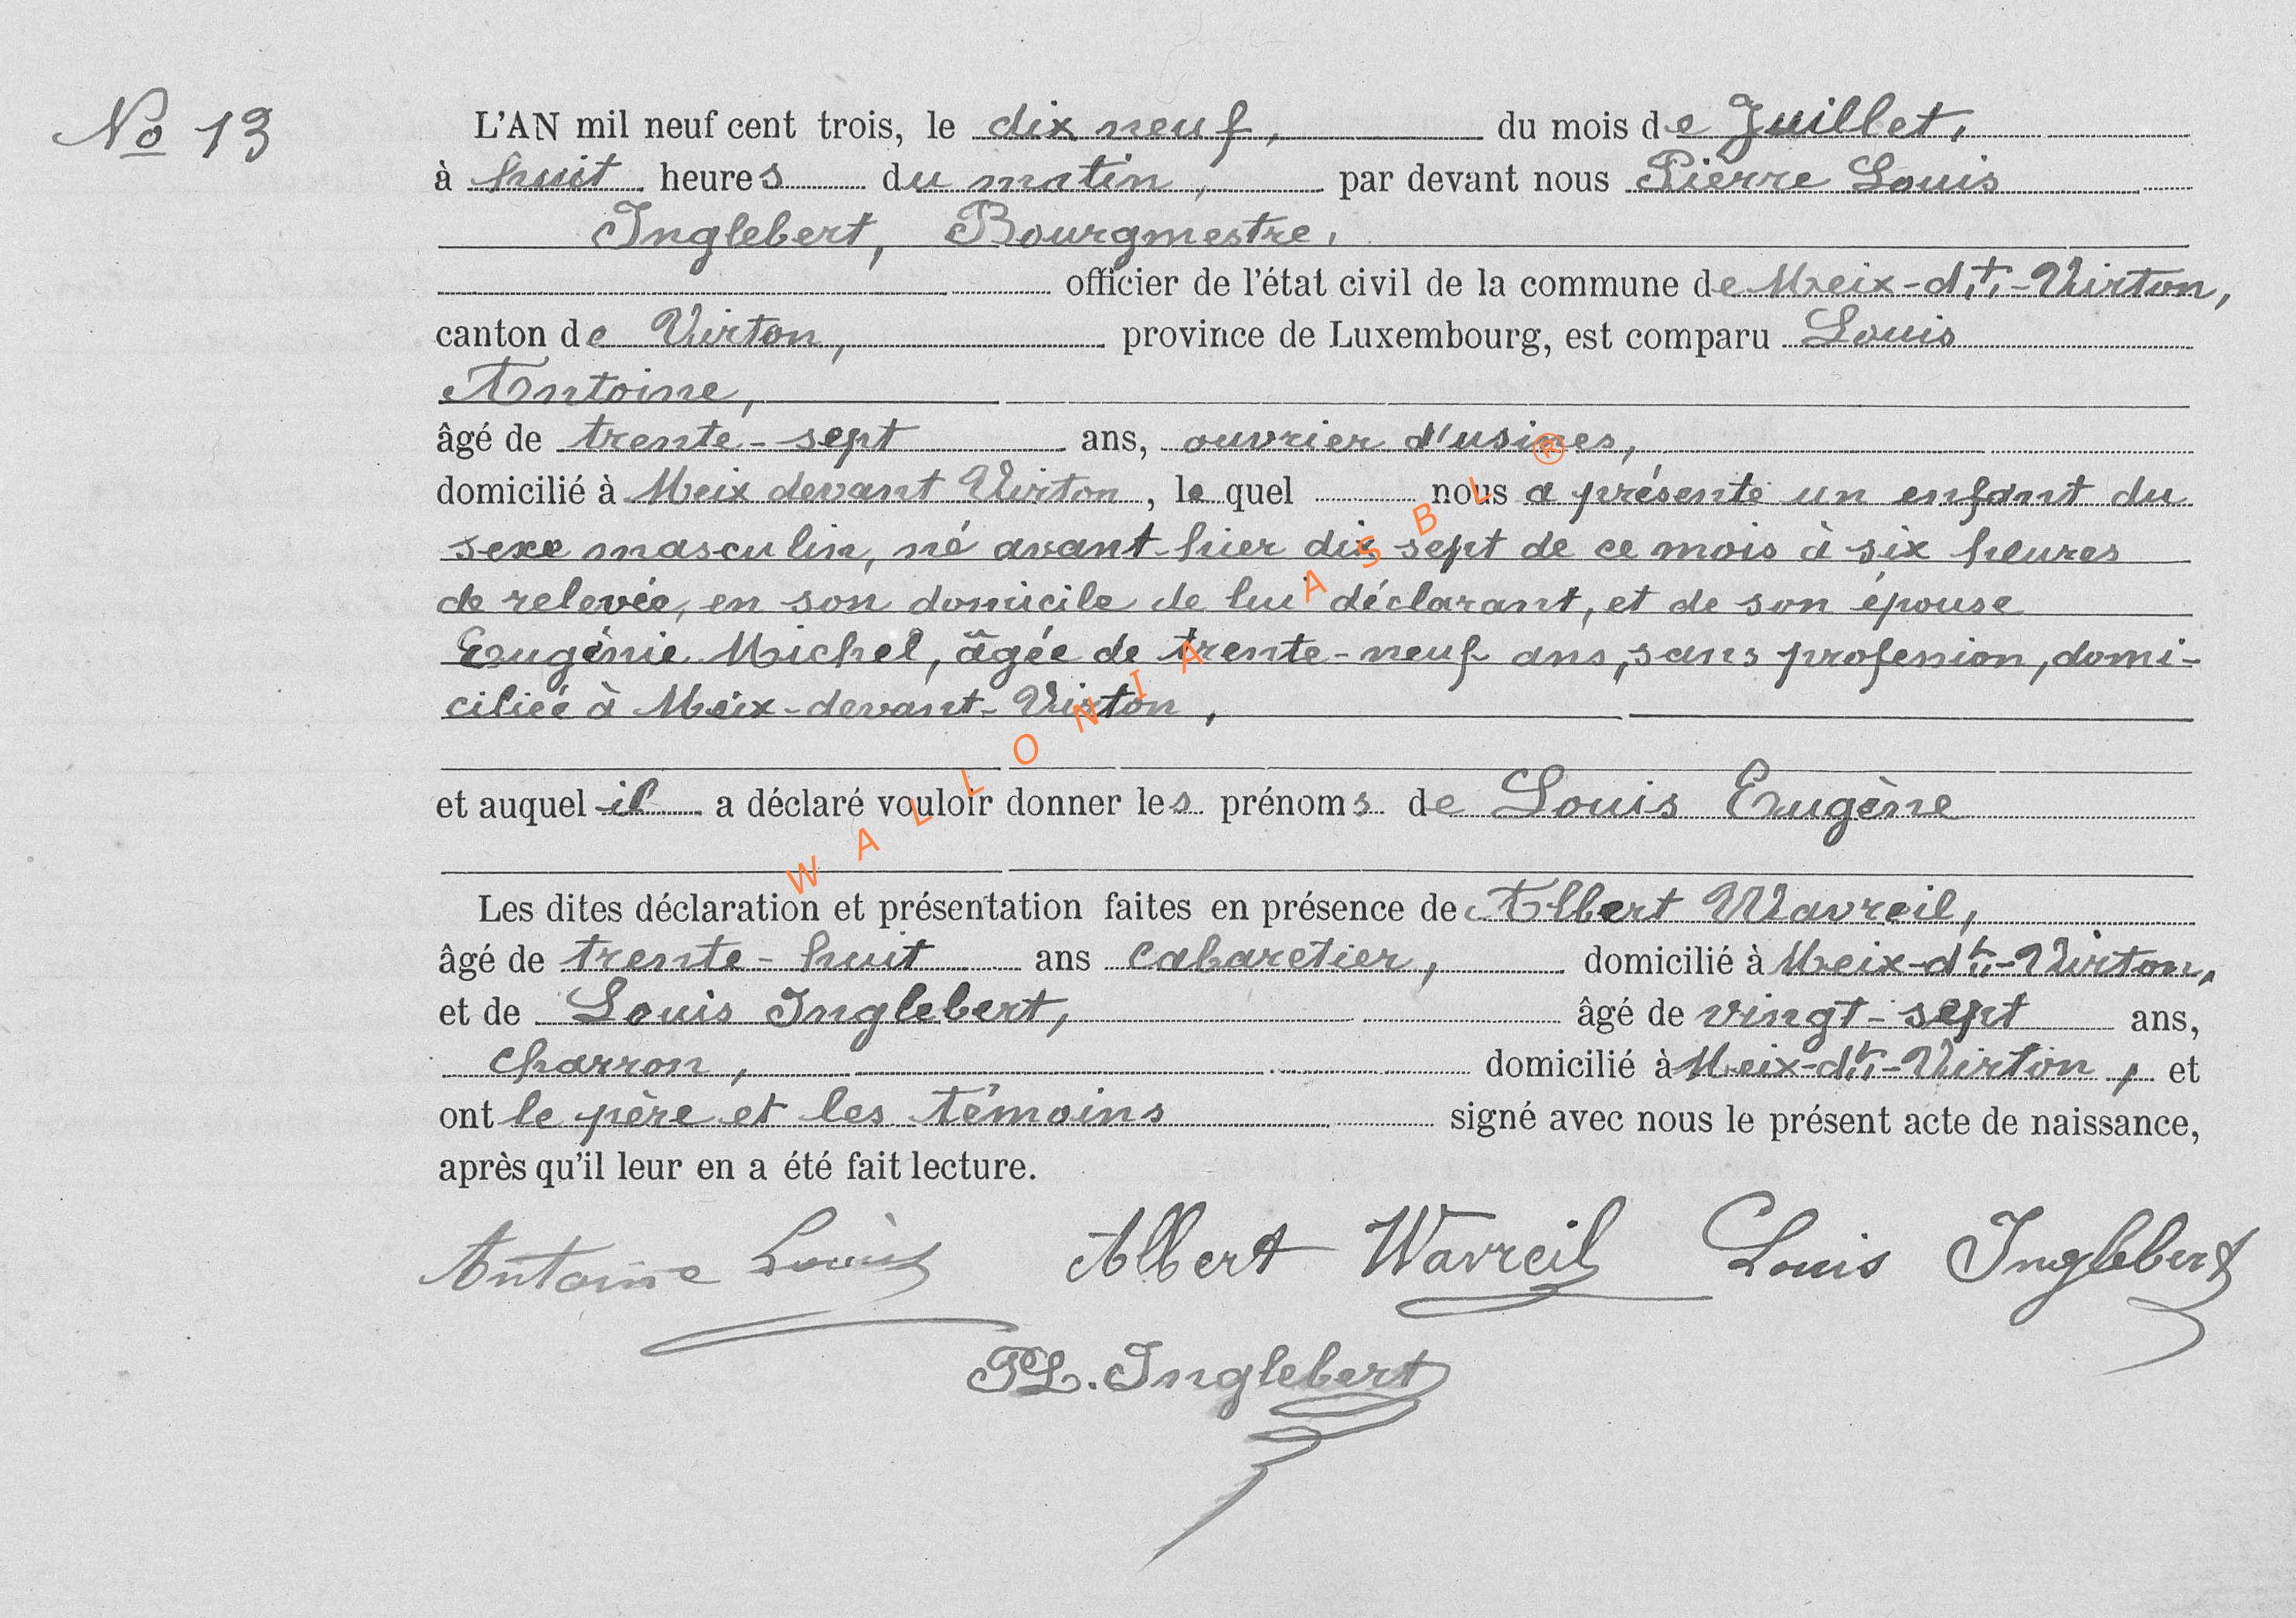 No 13
L'AN mil neuf cent trois, le dix neuf, du mois de Juillet,
à huit heures du matin, par devant nous Pierre Louis
Inglebert, Bourgmestre,
officier de l'état civil de la commune de Meix-dt-Virton,
canton de Virton, province de Luxembourg, est comparu Louis
Antoine,
âgé de trente-sept ans, ouvrier d'usines,
domicilié à Meix devant Virton, le quel nous a présenté un enfant du
sexe masculin, né avant-hier dix sept de ce mois à six heures
de relevée, en son domicile de lui déclarant, et de son épouse
Eugénie Michel, âgée de trente-neuf ans, sans profession, domi-
ciliée à Meix-devant-Virton,
et auquel il a déclaré vouloir donner les prénoms de Louis Eugène
Les dites déclaration et présentation faites en présence de Albert Wavreil,
âgé de trente-huit ans cabaretier, domicilié à Meix-dt-Virton,
et de Louis Inglebert, âgé de vingt-sept ans,
charron, domicilié à Meix-dt-Virton, et
ont le père et les témoins signé avec nous le présent acte de naissance,
après qu'il leur en a été fait lecture.
Antoine Louis Albert Wavreil Louis Inglebert
PL. Inglebert
WALLONIA ASBL ®